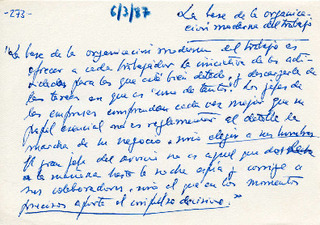 -273-
6/3/87
La base de la organiza-
ción moderna del trabajo
"La base de la organización moderna del trabajo es
ofrecer a cada trabajador la iniciativa de las acti-
vidades para las que está bien dotado, y descargarle de
las tareas en que es uno de tantos. Los jefes de
las empresas comprenden cada vez mejor que su
papel esencial no es reglamentar el detalle la
marcha de su negocio, sino elegir a sus hombres
El gran jefe del servicio no es aquel que desde
a la mañana hasta la noche espía y corrige a
sus colaboradores, sino el que en los momentos
precisos aporta el impulso decisivo."